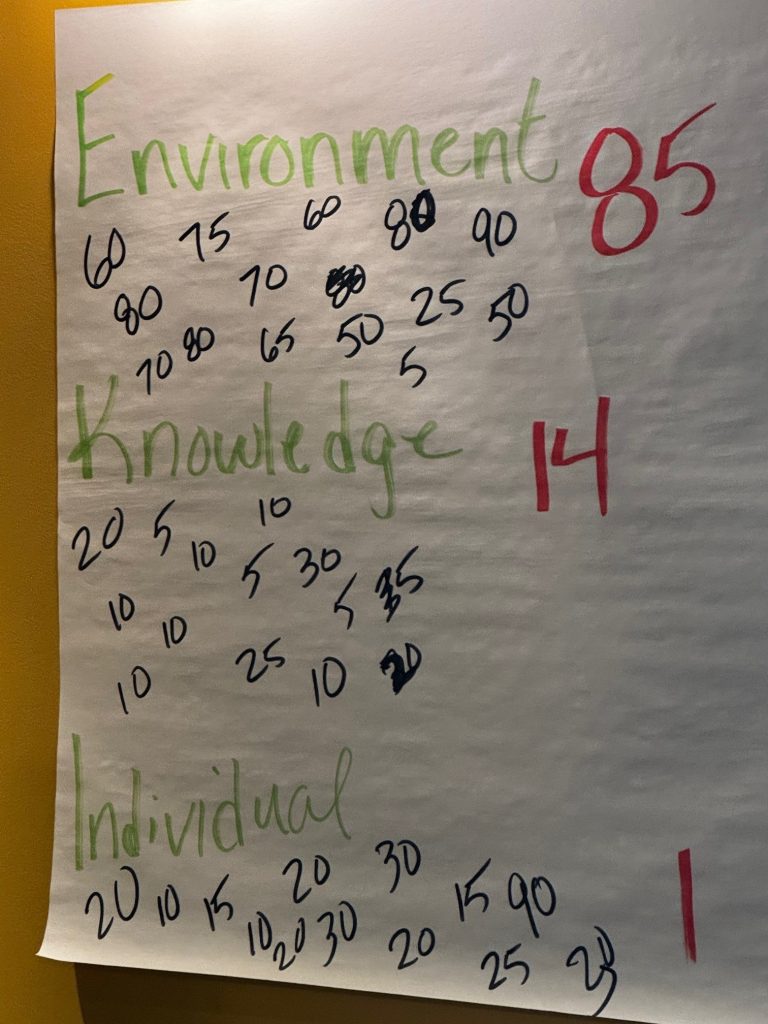 Environment 85
60 75 60 80 90
80 70 80
70 80 65 50 25 50
5
Knowledge 14
20 5 10
10 5 30
10 10 5 35
10 25 10 20
Individual
20 10 15 20 30 15 90 1
10 20 30 20 25 20